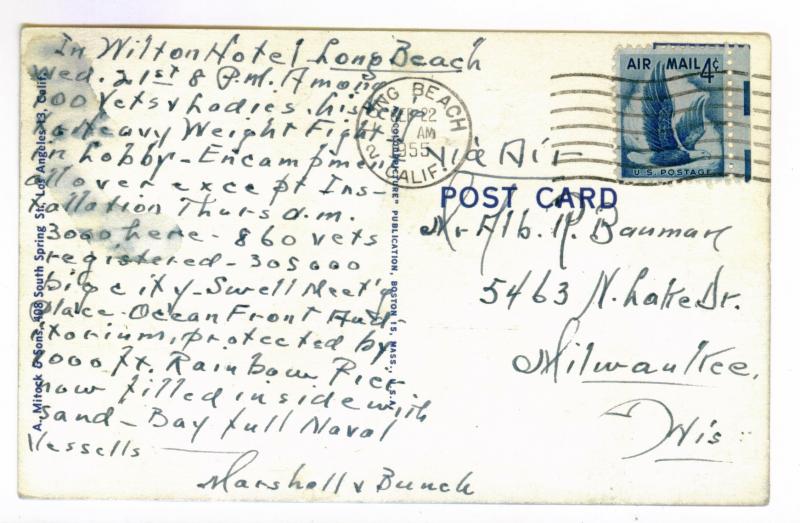 In Wilton Hotel Long Beach
Wed. 21st 8 P.M. Among
00 Vets & Ladies. Listening
Heavy Weight Fight
n Lobby - Encampment
all over except Ins-
tallation Thurs a.m.
3000 here - 860 vets
registered - 305000
big city - Swell Meet'g
place - Ocean Front Aud-
itorium, protected by
000 ft. Rainbow Pier
now filled inside with
sand - Bay full Naval
Vessells
Marshall & Bunch
A. Mitock & Sons, 408 South Spring St., Los Angeles 13, Calif.
"COLOURPICTURE" PUBLICATION, BOSTON 15, MASS., U.S.A.
LONG BEACH
SEP 22
AM
1955
2, CALIF.
AIR MAIL 4¢
U.S. POSTAGE
Via Air
POST CARD
Mr Alb. R. Bauman
5463 N. Lake Dr.
Milwaukee,
Wis